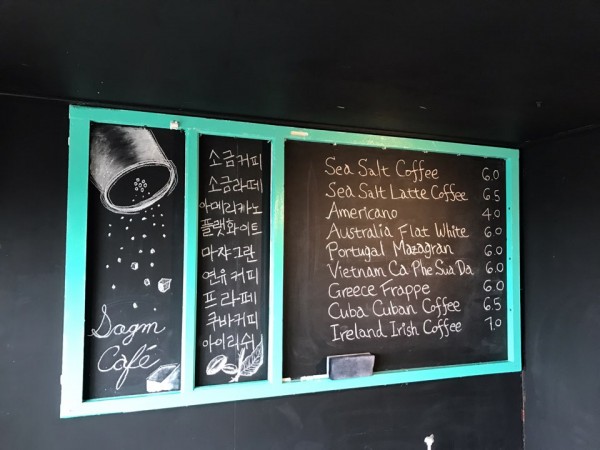 Sogm
Café
소금커피
소금라떼
아메리카노
플랫화이트
마쟈그란
연유커피
프라페
쿠바커피
아이리쉬
Sea Salt Coffee 6.0
Sea Salt Latte Coffee 6.5
Americano 4.0
Australia Flat White 6.0
Portugal Mazagran 6.0
Vietnam Ca Phe Sua Da 6.0
Greece Frappe 6.0
Cuba Cuban Coffee 6.5
Ireland Irish Coffee 7.0